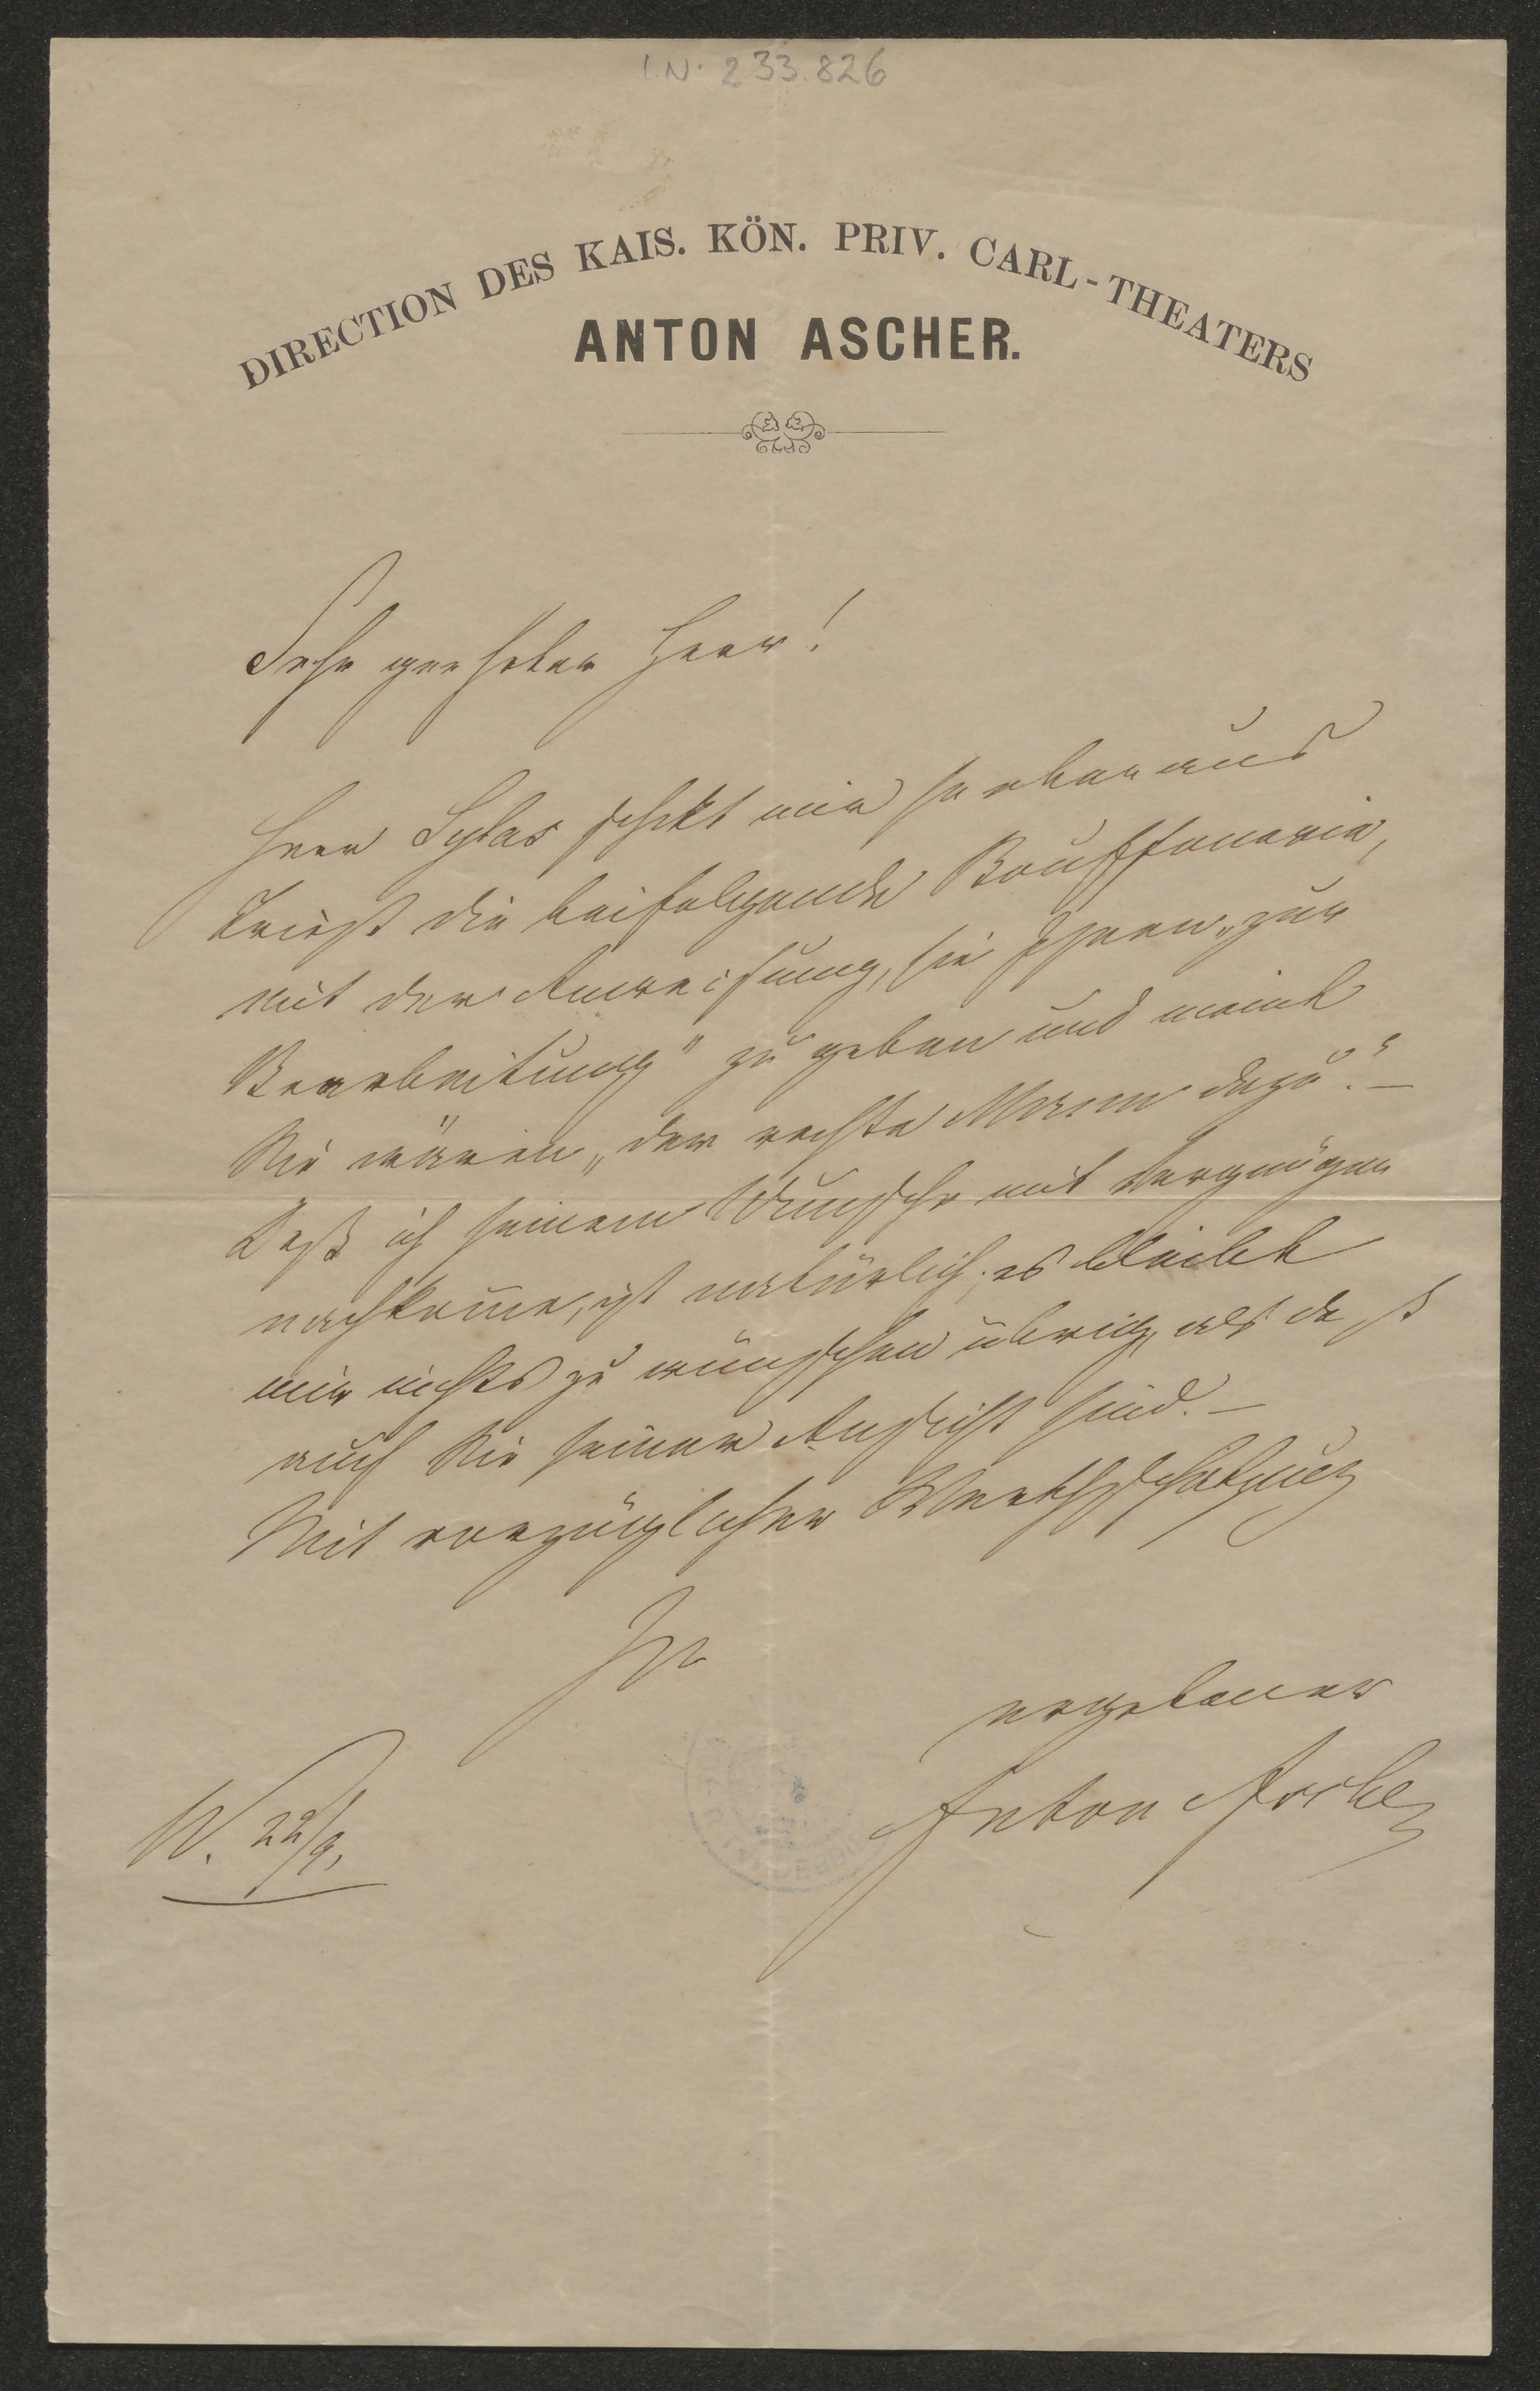 IN. 233.826
DIRECTION DES KAIS. KÖN. PRIV. CARL-THEATERS
ANTON ASCHER.
Sehr geehrter Herr!
Herr schikt mir so eben aus
Triest die beifolgende Bouffonerie,
mit der Anweisung, sie Ihnen „zur
Bearbeitung" zu geben und meint
Sie wären „der rechte Mann dazu."–
Daß ich seinem Wunsche mit Vergnügen
nachkom̄e, ist natürlich; es bleibt
mir nichts zu wünschen übrig, als daß
auch Sie seiner Ansicht sind.–
Mit vorzüglicher Werthschätzung
Ihr
ergebener
Anton Ascher
W. 22/9.